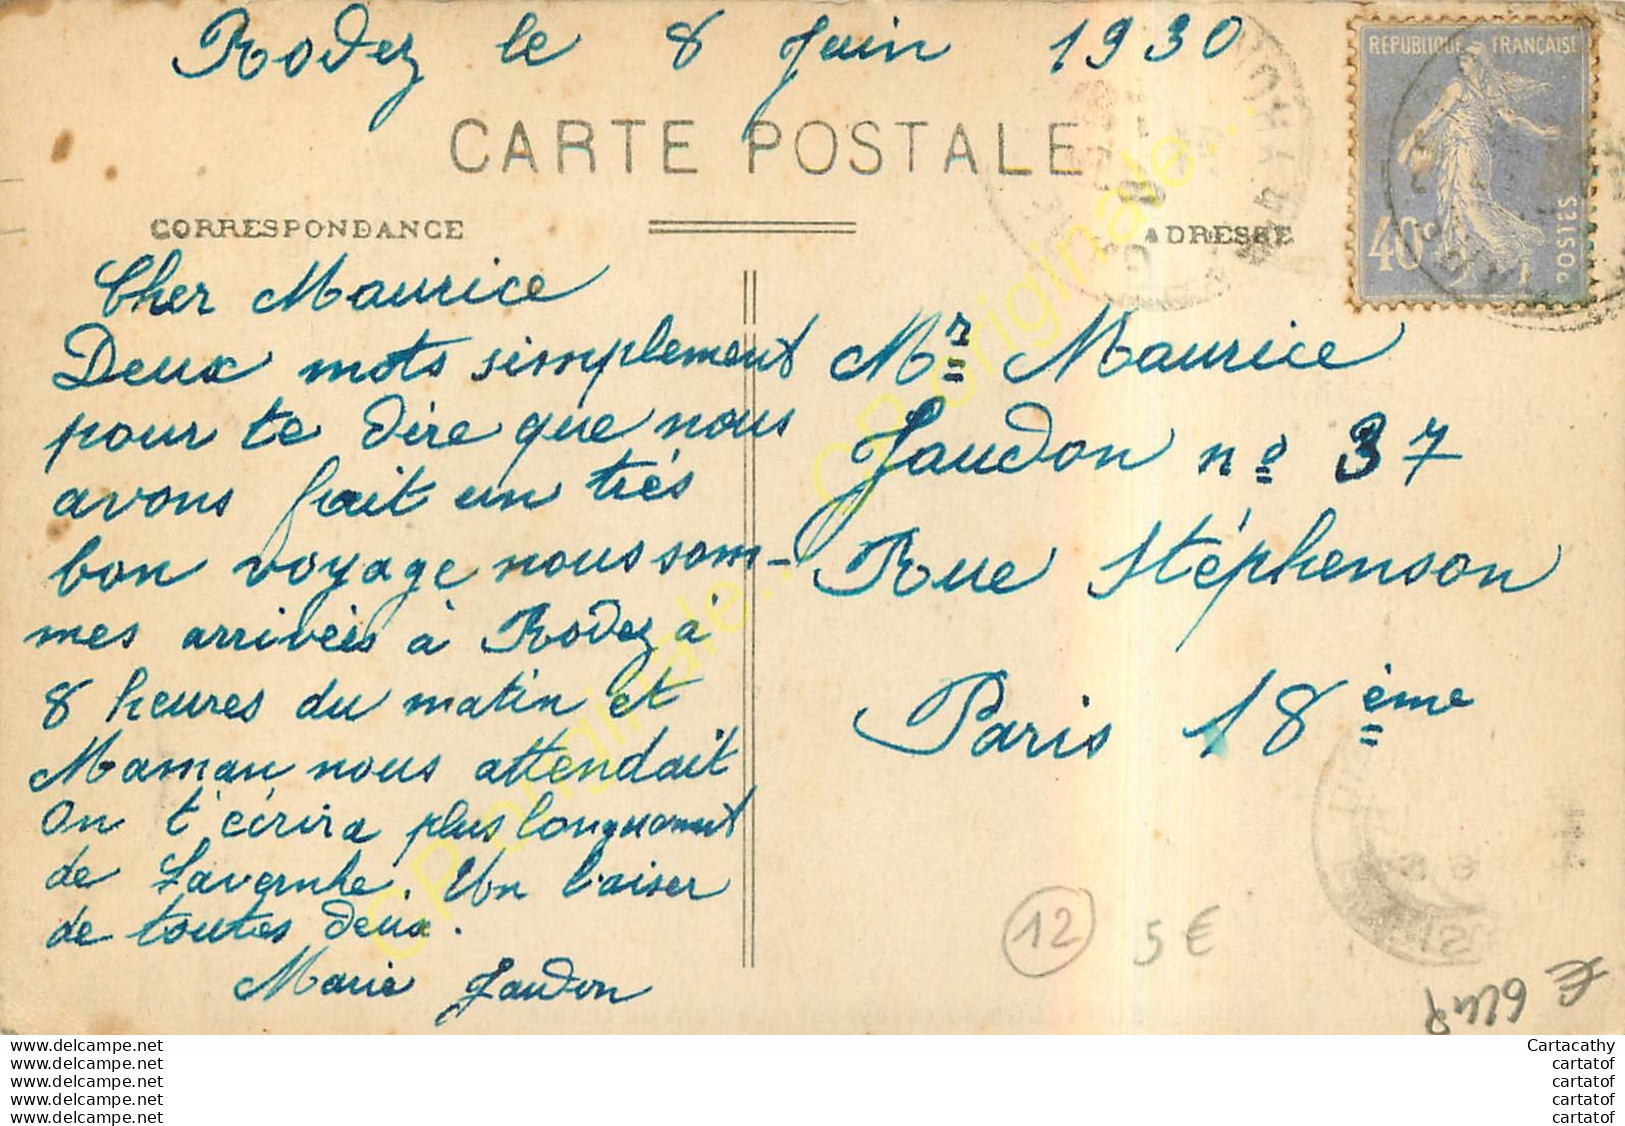 Rodez le 8 Juin 1930
RÉPUBLIQUE FRANÇAISE
40
POSTES
CARTE POSTALE
CORRESPONDANCE
ADRESSE
Cher Maurice
Deux mots simplement
pour te dire que nous
avons fait un très
bon voyage nous som-
mes arrivées à Rodez à
8 heures du matin et
Maman nous attendait
On t'écrira plus longuement
de Lavernhe. Un baiser
de toutes deux.
Marie Jaudon
Mr Maurice
Jaudon no 37
Rue Stéphenson
Paris 18ème
12
5 €
CPoriginale...
CPoriginale...
www.delcampe.net
www.delcampe.net
www.delcampe.net
www.delcampe.net
www.delcampe.net
Cartacathy
cartatof
cartatof
cartatof
cartatof